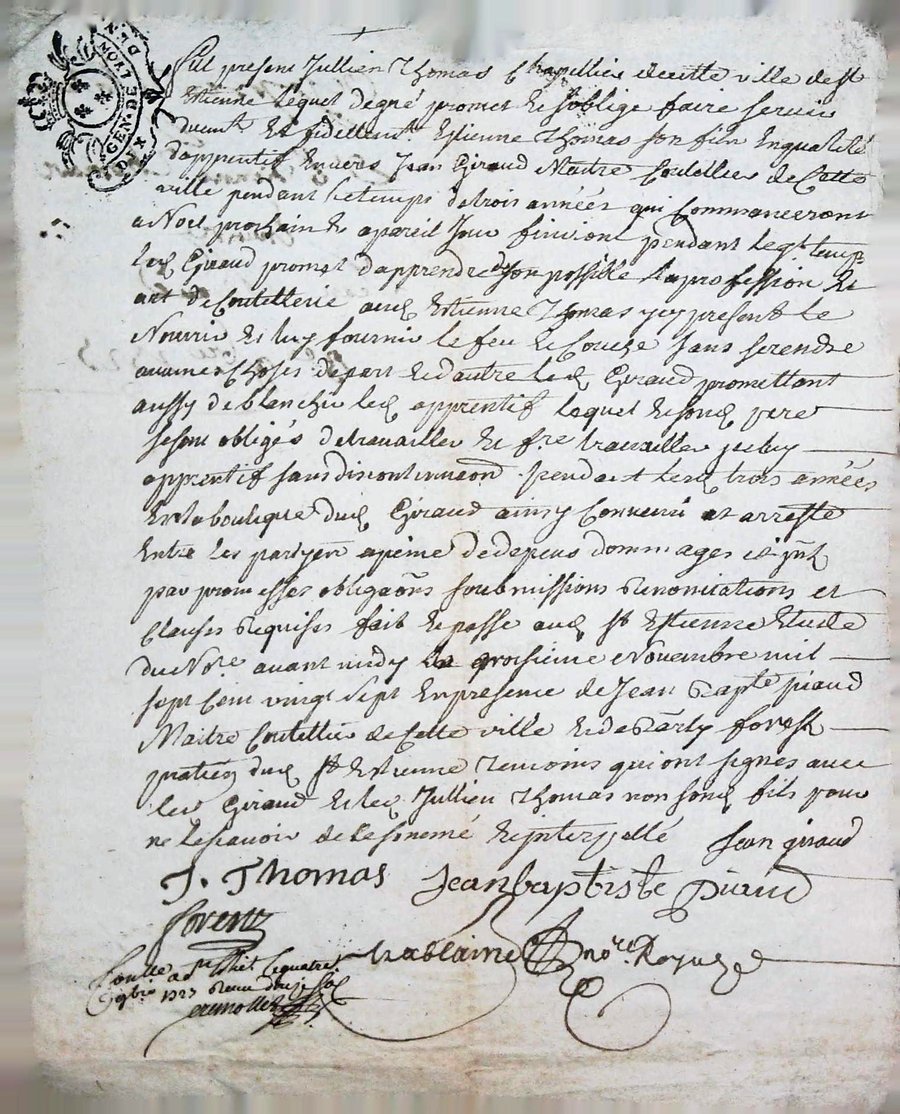 GEN. DE MONT
DIX DEN
Fut present Jullien Thomas Chapellier decette ville de St
Estienne lequel degré promet et soblige faire servir
duemt et fidellemt Estienne Thomas son fils en qualité
dapprentif envers Jean Giraud Maitre Coutellier de Cette
ville pendant letemps detrois années qui Commanceront
a Noel prochain et apareil jour finiront pendant leqt temps
led Giraud promet dapprendre deson possible laprofession et
art de Coutellerie aud Estienne Thomas ycy present le
Nourrir et luy fournir le feu et Couche sans serendre
aucunes Choses depart et dautre led Giraud promettant
aussy deblanchir led apprentif lequel et sond pere
sesont obligés detravailler et fre travailler yceluy
apprentif sans discontinuaon pendant lesd trois années
en la boutique dud Giraud ainsy Convenu et arresté
Entre les partyes apeine de depens dommages et jnts
par promesses obligaons soubmissions Renonciations et
Clauses Requises fait et passé aud St Estienne Etude
du Nore avant midy le troisieme Novembre mil
sept Cent vingt sept en presence de Jean Bapte piaud
Maitre Coutellier de Cette ville et de forest
praticien dud St Estienne temoins qui ont signés avec
led Giraud et led Jullien Thomas non sond fils pour
ne lesçavoir de ce enquis et jnterpellé Jean giraud
J. Thomas Jean baptiste Piaud
forest
nore Royal
Conllé a St Etiet le quatre
9bre 1727 Receu douze sols